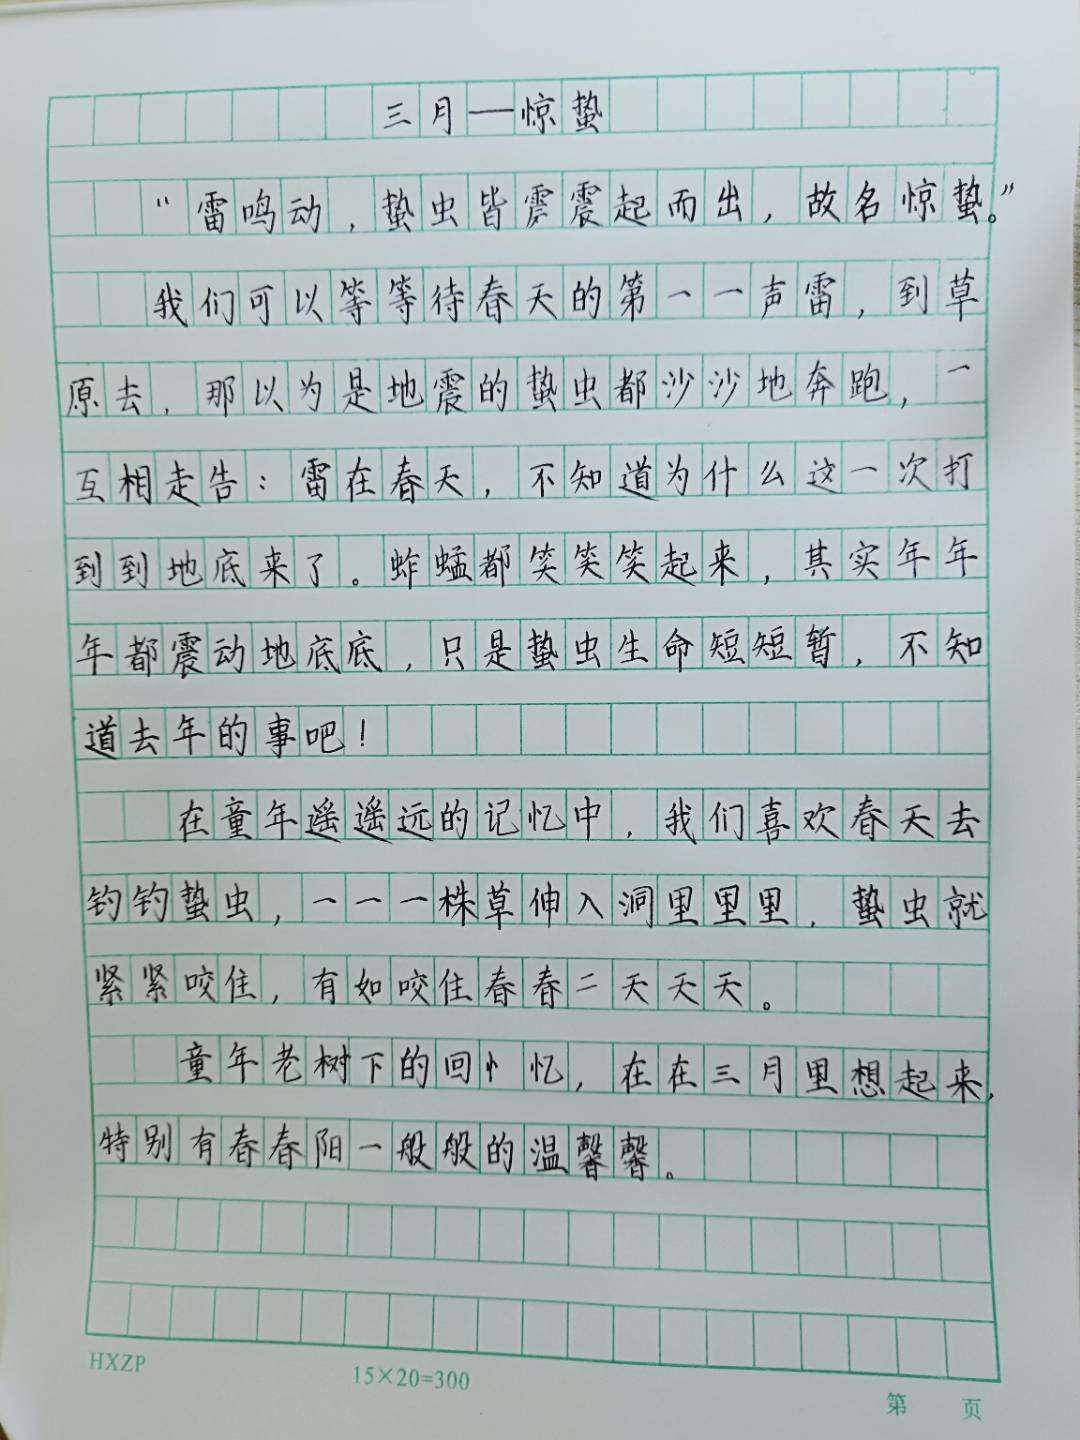 三月——惊蛰
“雷鸣动，蛰虫皆震震起而出，故名惊蛰。”
我们可以等等待春天的第一一声雷，到草
原去，那以为是地震的蛰虫都沙沙地奔跑，一
互相走告：雷在春天，不知道为什么这一次打
到到地底来了。蚱蜢都笑笑笑起来，其实年年
年都震动地底底，只是蛰虫生命短短暂，不知
道去年的事吧！
在童年遥遥远的记忆中，我们喜欢春天去
钓钓蛰虫，一一一株草伸入洞里里里，蛰虫就
紧紧咬住，有如咬住春春二天天天。
童年老树下的回忄忆，在在三月里想起来，
特别有春春阳一般般的温馨馨。
HXZP
15×20=300
第 页